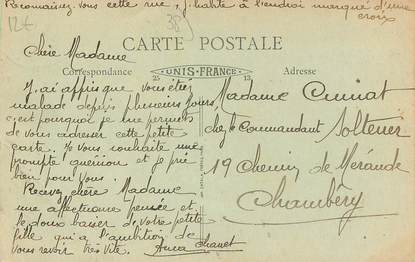 Reconnaissez vous cette rue, j'habite à l'endroit marqué d'une
croix
12€
38
CARTE POSTALE
Correspondance
UNIS-FRANCE
Adresse
Chère Madame
J'ai appris que vous étiez
malade depuis plusieurs jours
c'est pourquoi je me permets
de vous adresser cette petite
carte. Je vous souhaite une
prompte guérison et je prie
bien pour vous.
Recevez chère Madame
une affectueuse pensée et
le doux baiser de votre petite
fille qui a l'ambition de
vous revoir très vite.
Madame Cuinat
chez le Commandant
19 Chemin de Mérande
Chambéry